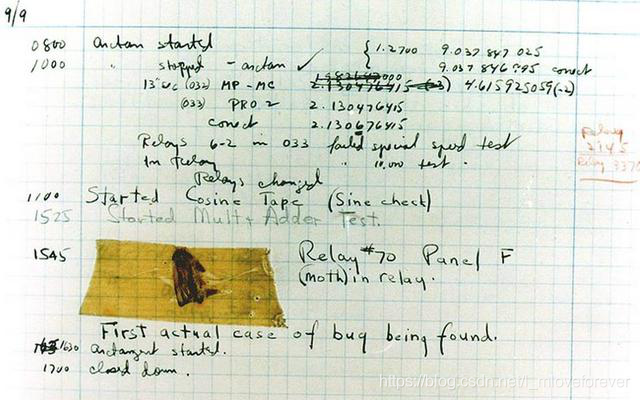 9/9
0800 arctan started { 1.2700 9.037 847 025
1000 " stopped - arctan ✓ 9.037 846 995 correct
13"uc (032) MP - MC 2.130476415 (-3) 4.615925059(-2)
(033) PRO 2 2.130476415
correct 2.130676415
Relays 6-2 in 033 failed special speed test
In Relay " 10,000 test.
Relay
2145
Relay 3370
Relays changed
1100 Started Cosine Tape (Sine check)
1525 Started Mult + Adder Test.
1545 Relay #70 Panel F
(moth) in relay.
First actual case of bug being found.
1630 arctangent started.
1700 closed down.